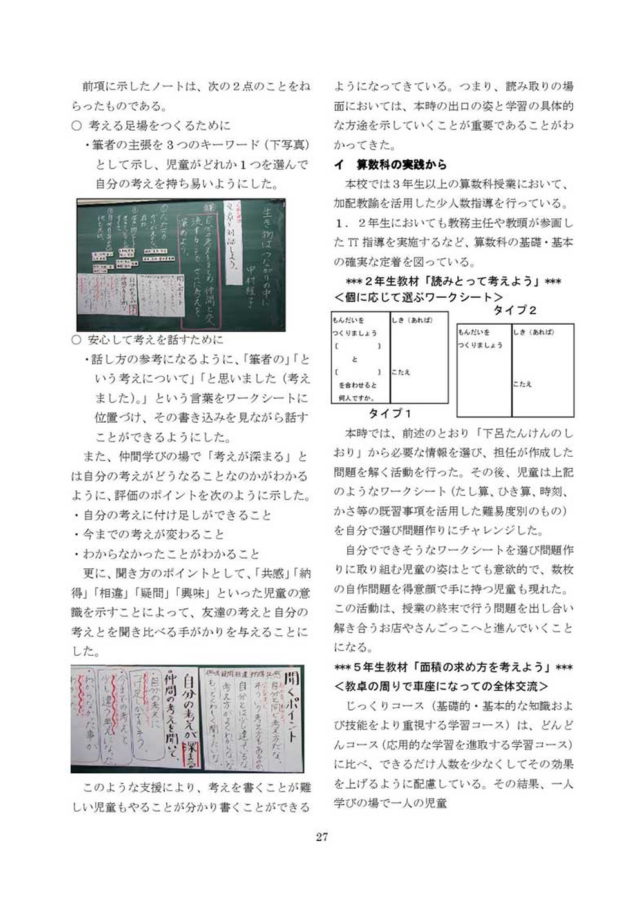 前項に示したノートは、次の２点のことをね
らったものである。
○ 考える足場をつくるために
・筆者の主張を３つのキーワード（下写真）
として示し、児童がどれか１つを選んで
自分の考えを持ち易いようにした。
生き物はつながりの中に
中村桂子
○ 安心して考えを話すために
・話し方の参考になるように、「筆者の」「と
いう考えについて」「と思いました（考え
ました）。」という言葉をワークシートに
位置づけ、その書き込みを見ながら話す
ことができるようにした。
また、仲間学びの場で「考えが深まる」と
は自分の考えがどうなることなのかがわかる
ように、評価のポイントを次のように示した。
・自分の考えに付け足しができること
・今までの考えが変わること
・わからなかったことがわかること
更に、聞き方のポイントとして、「共感」「納
得」「相違」「疑問」「興味」といった児童の意
識を示すことによって、友達の考えと自分の
考えとを聞き比べる手がかりを与えることに
した。
聞くポイント
自分の考えが深まる
仲間の考えを聞いて
このような支援により、考えを書くことが難
しい児童もやることが分かり書くことができる
ようになってきている。つまり、読み取りの場
面においては、本時の出口の姿と学習の具体的
な方途を示していくことが重要であることがわ
かってきた。
イ 算数科の実践から
本校では３年生以上の算数科授業において、
加配教諭を活用した少人数指導を行っている。
１．２年生においても教務主任や教頭が参画し
た TT 指導を実施するなど、算数科の基礎・基本
の確実な定着を図っている。
***２年生教材「読みとって考えよう」***
＜個に応じて選ぶワークシート＞
タイプ２
もんだいを
つくりましょう
〔　　　〕
と
〔　　　〕
を合わせると
何人ですか。
しき（あれば）
こたえ
タイプ１
もんだいを
つくりましょう
しき（あれば）
こたえ
本時では、前述のとおり「下呂たんけんのし
おり」から必要な情報を選び、担任が作成した
問題を解く活動を行った。その後、児童は上記
のようなワークシート（たし算、ひき算、時刻、
かさ等の既習事項を活用した難易度別のもの）
を自分で選び問題作りにチャレンジした。
自分でできそうなワークシートを選び問題作
りに取り組む児童の姿はとても意欲的で、数枚
の自作問題を得意顔で手に持つ児童も現れた。
この活動は、授業の終末で行う問題を出し合い
解き合うお店やさんごっこへと進んでいくこと
になる。
***５年生教材「面積の求め方を考えよう」***
＜教卓の周りで車座になっての全体交流＞
じっくりコース（基礎的・基本的な知識およ
び技能をより重視する学習コース）は、どんど
んコース（応用的な学習を進取する学習コース）
に比べ、できるだけ人数を少なくしてその効果
を上げるように配慮している。その結果、一人
学びの場で一人の児童
27